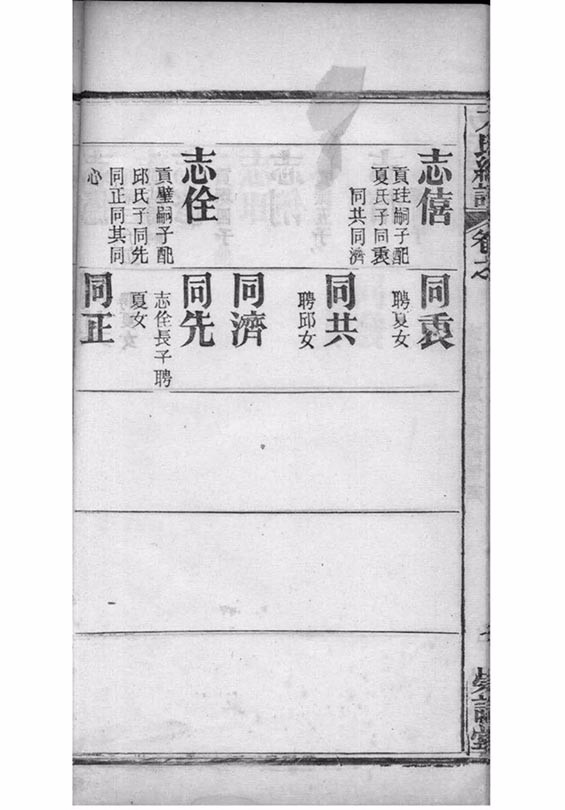 氏續譜
卷之
志僖
貢珪嗣子配
夏氏子同衷
同共同濟
志佺
貢璧嗣子配
邱氏子同先
同正同其同
心
同衷
聘夏女
同共
聘邱女
同濟
同先
志佺長子聘
夏女
同正